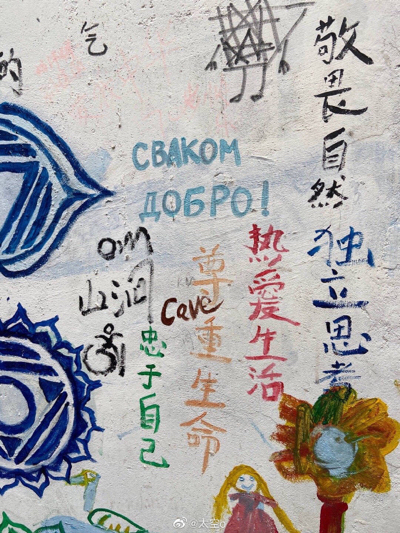 气
的
敬畏自然
独立思考
СВАКОМ
ДОБРО!
热爱生活
尊重生命
om
山洞
Cave
忠于自己